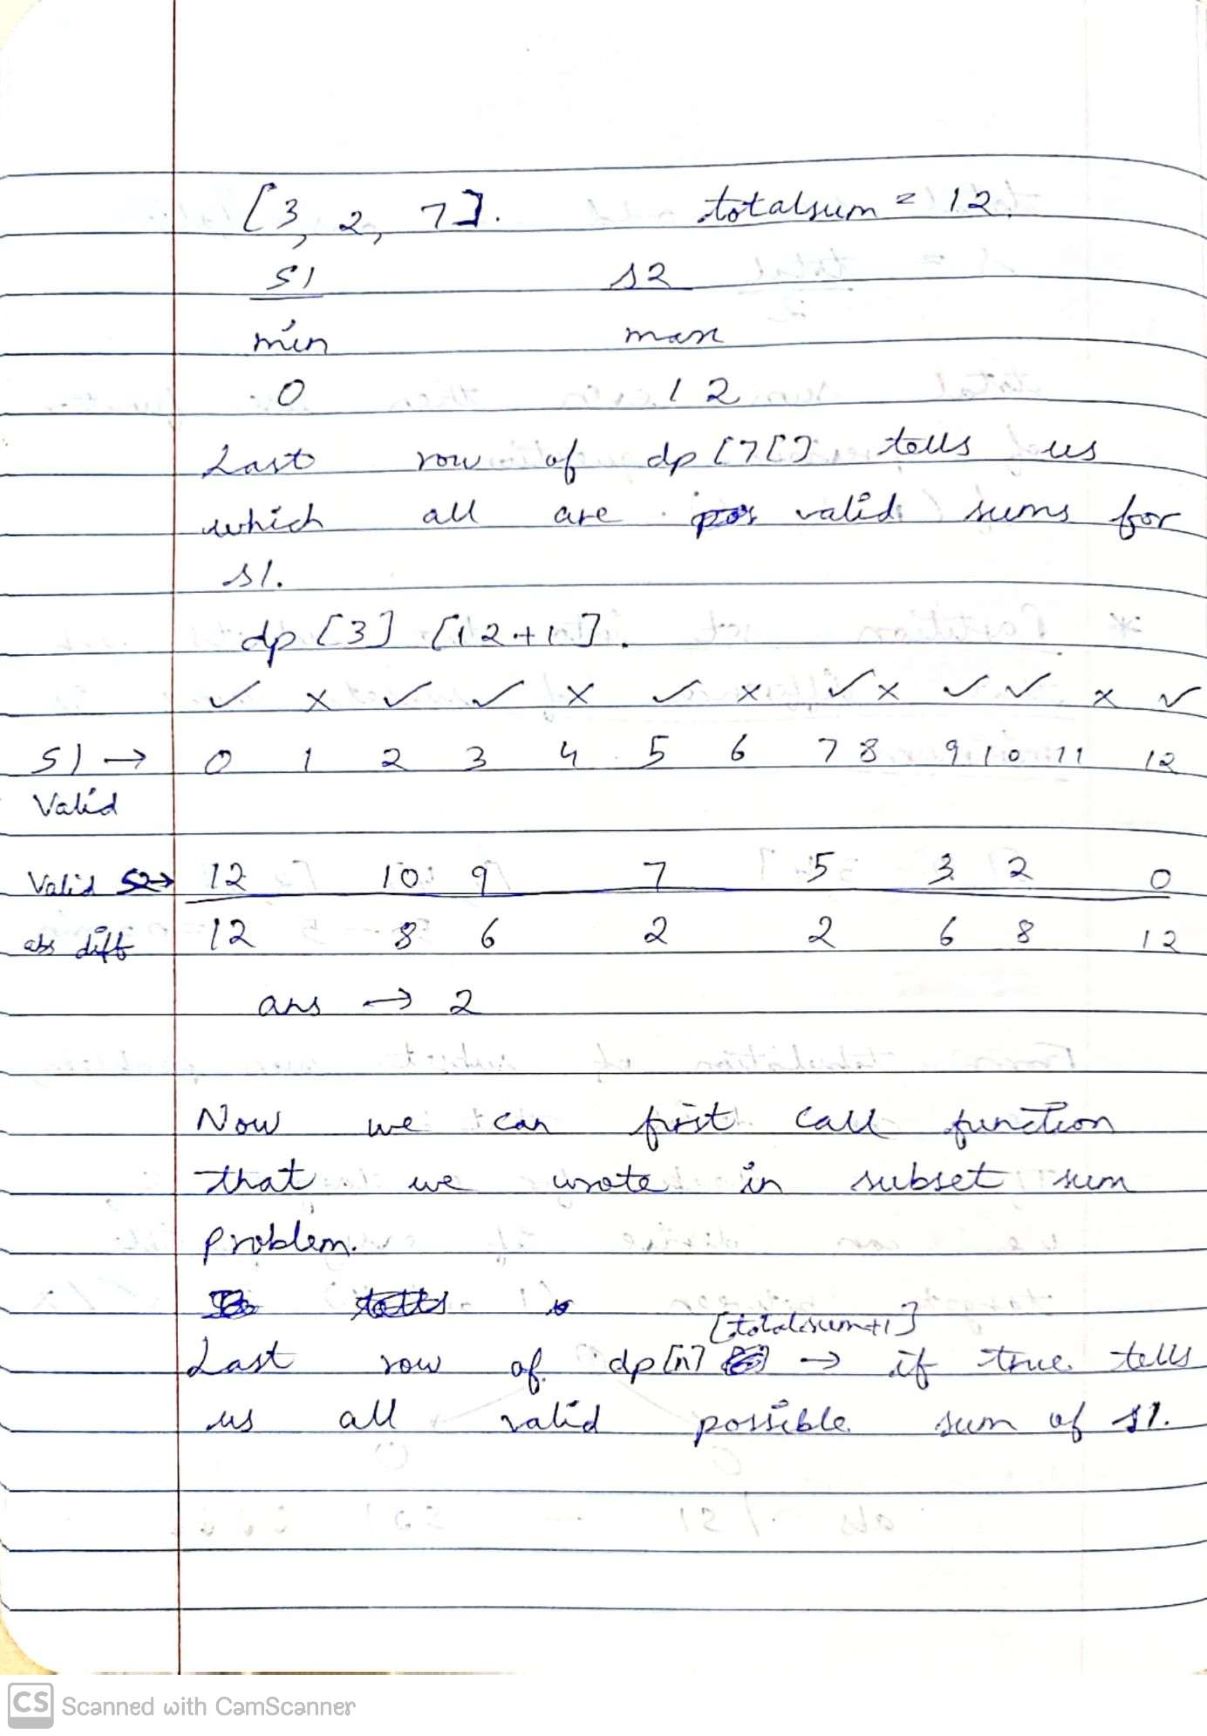 [3, 2, 7]. totalsum = 12.
s1 s2
min max
0 12
Last row of dp[][] tells us
which all are pos valid sums for
s1.
dp[3] [12+1].
✓ x ✓ ✓ x ✓ x ✓ x ✓ ✓ x ✓
S1 → 0 1 2 3 4 5 6 7 8 9 10 11 12
Valid
Valid S2→ 12 10 9 7 5 3 2 0
abs diff 12 8 6 2 2 6 8 12
ans → 2
Now we can first call function
that we wrote in subset sum
problem.
[totalsum+1]
Last row of dp[n] → if true tells
us all valid possible sum of s1.
CS Scanned with CamScanner